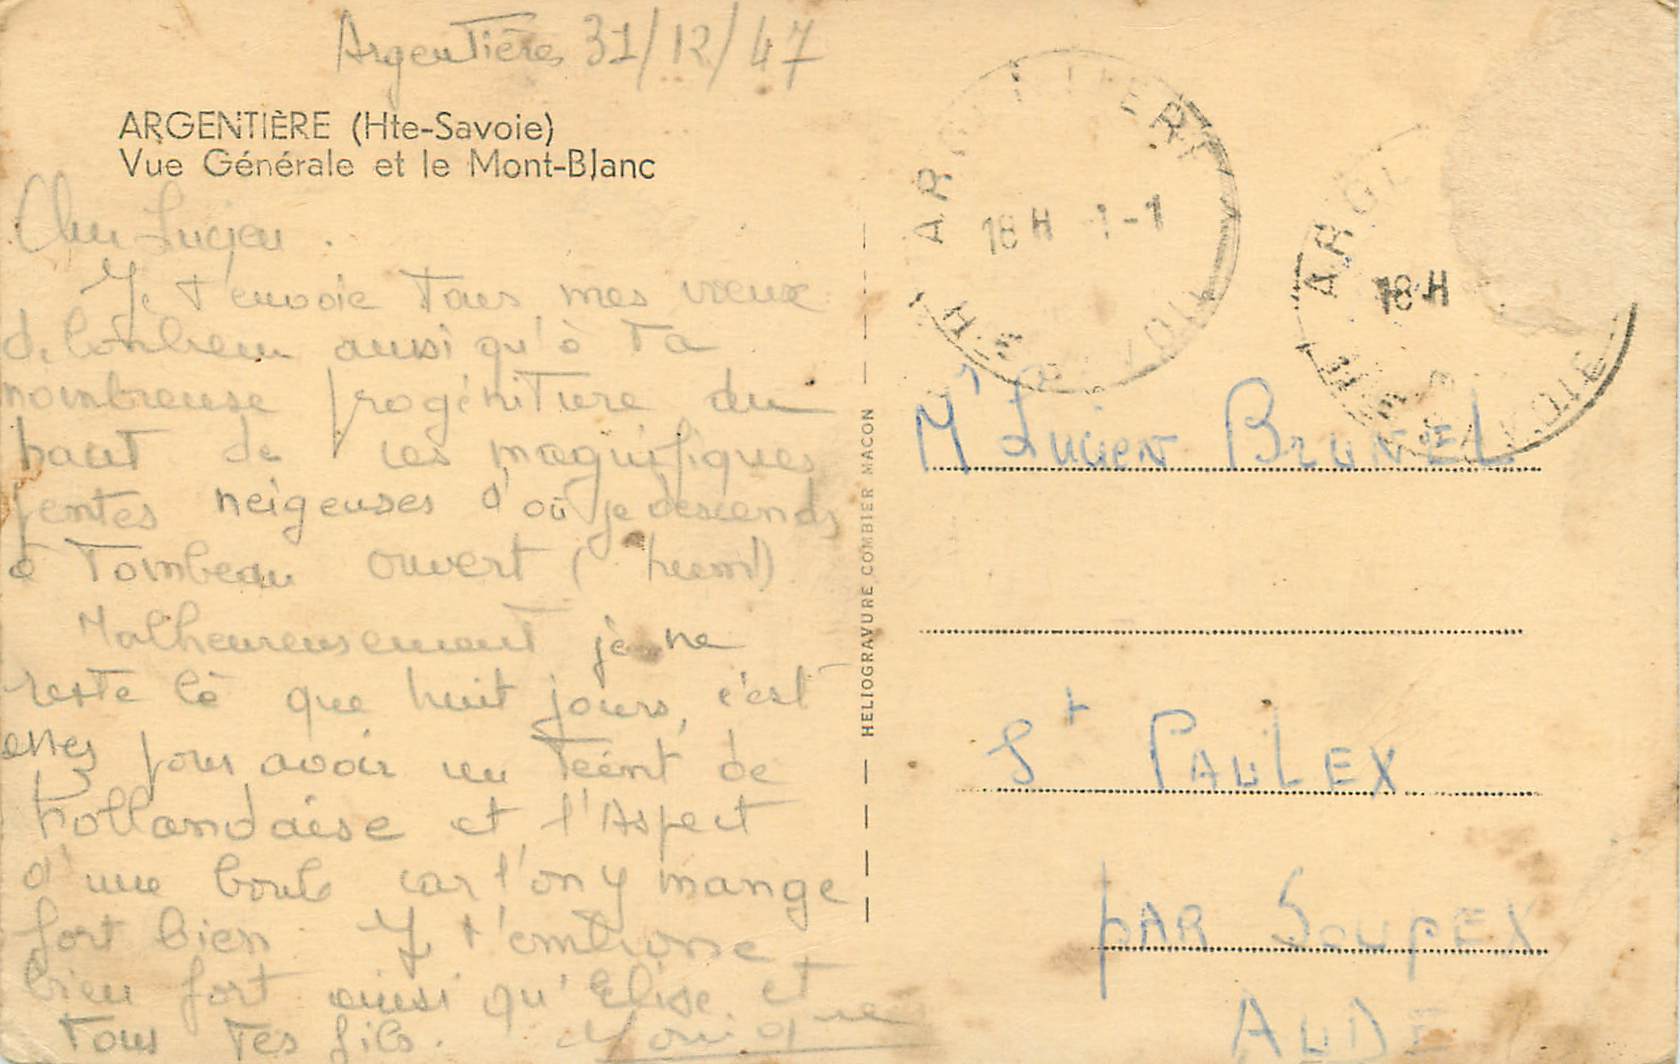 Argentière 31/12/47
ARGENTIÈRE (Hte-Savoie)
Vue Générale et le Mont-Blanc
Cher Lucien.
Je t'envoie tous mes vœux
de bonheur ainsi qu'à ta
nombreuse progéniture du
haut de ces magnifiques
pentes neigeuses d'où je descends
à tombeau ouvert (hum!)
Malheureusement je ne
reste là que huit jours, c'est
assez pour avoir un teint de
hollandaise et l'aspect
d'une boule car l'on y mange
fort bien. Je t'embrasse
bien fort ainsi qu'Elise et
tous tes fils. Monique
HELIOGRAVURE COMBIER MACON
ARGENTIERE
18H 1-1
HTE SAVOIE
ARGE
18H
HTE SAVOIE
Mr Lucien BRUNEL
St PAULEX
PAR SOUPEX
AUDE